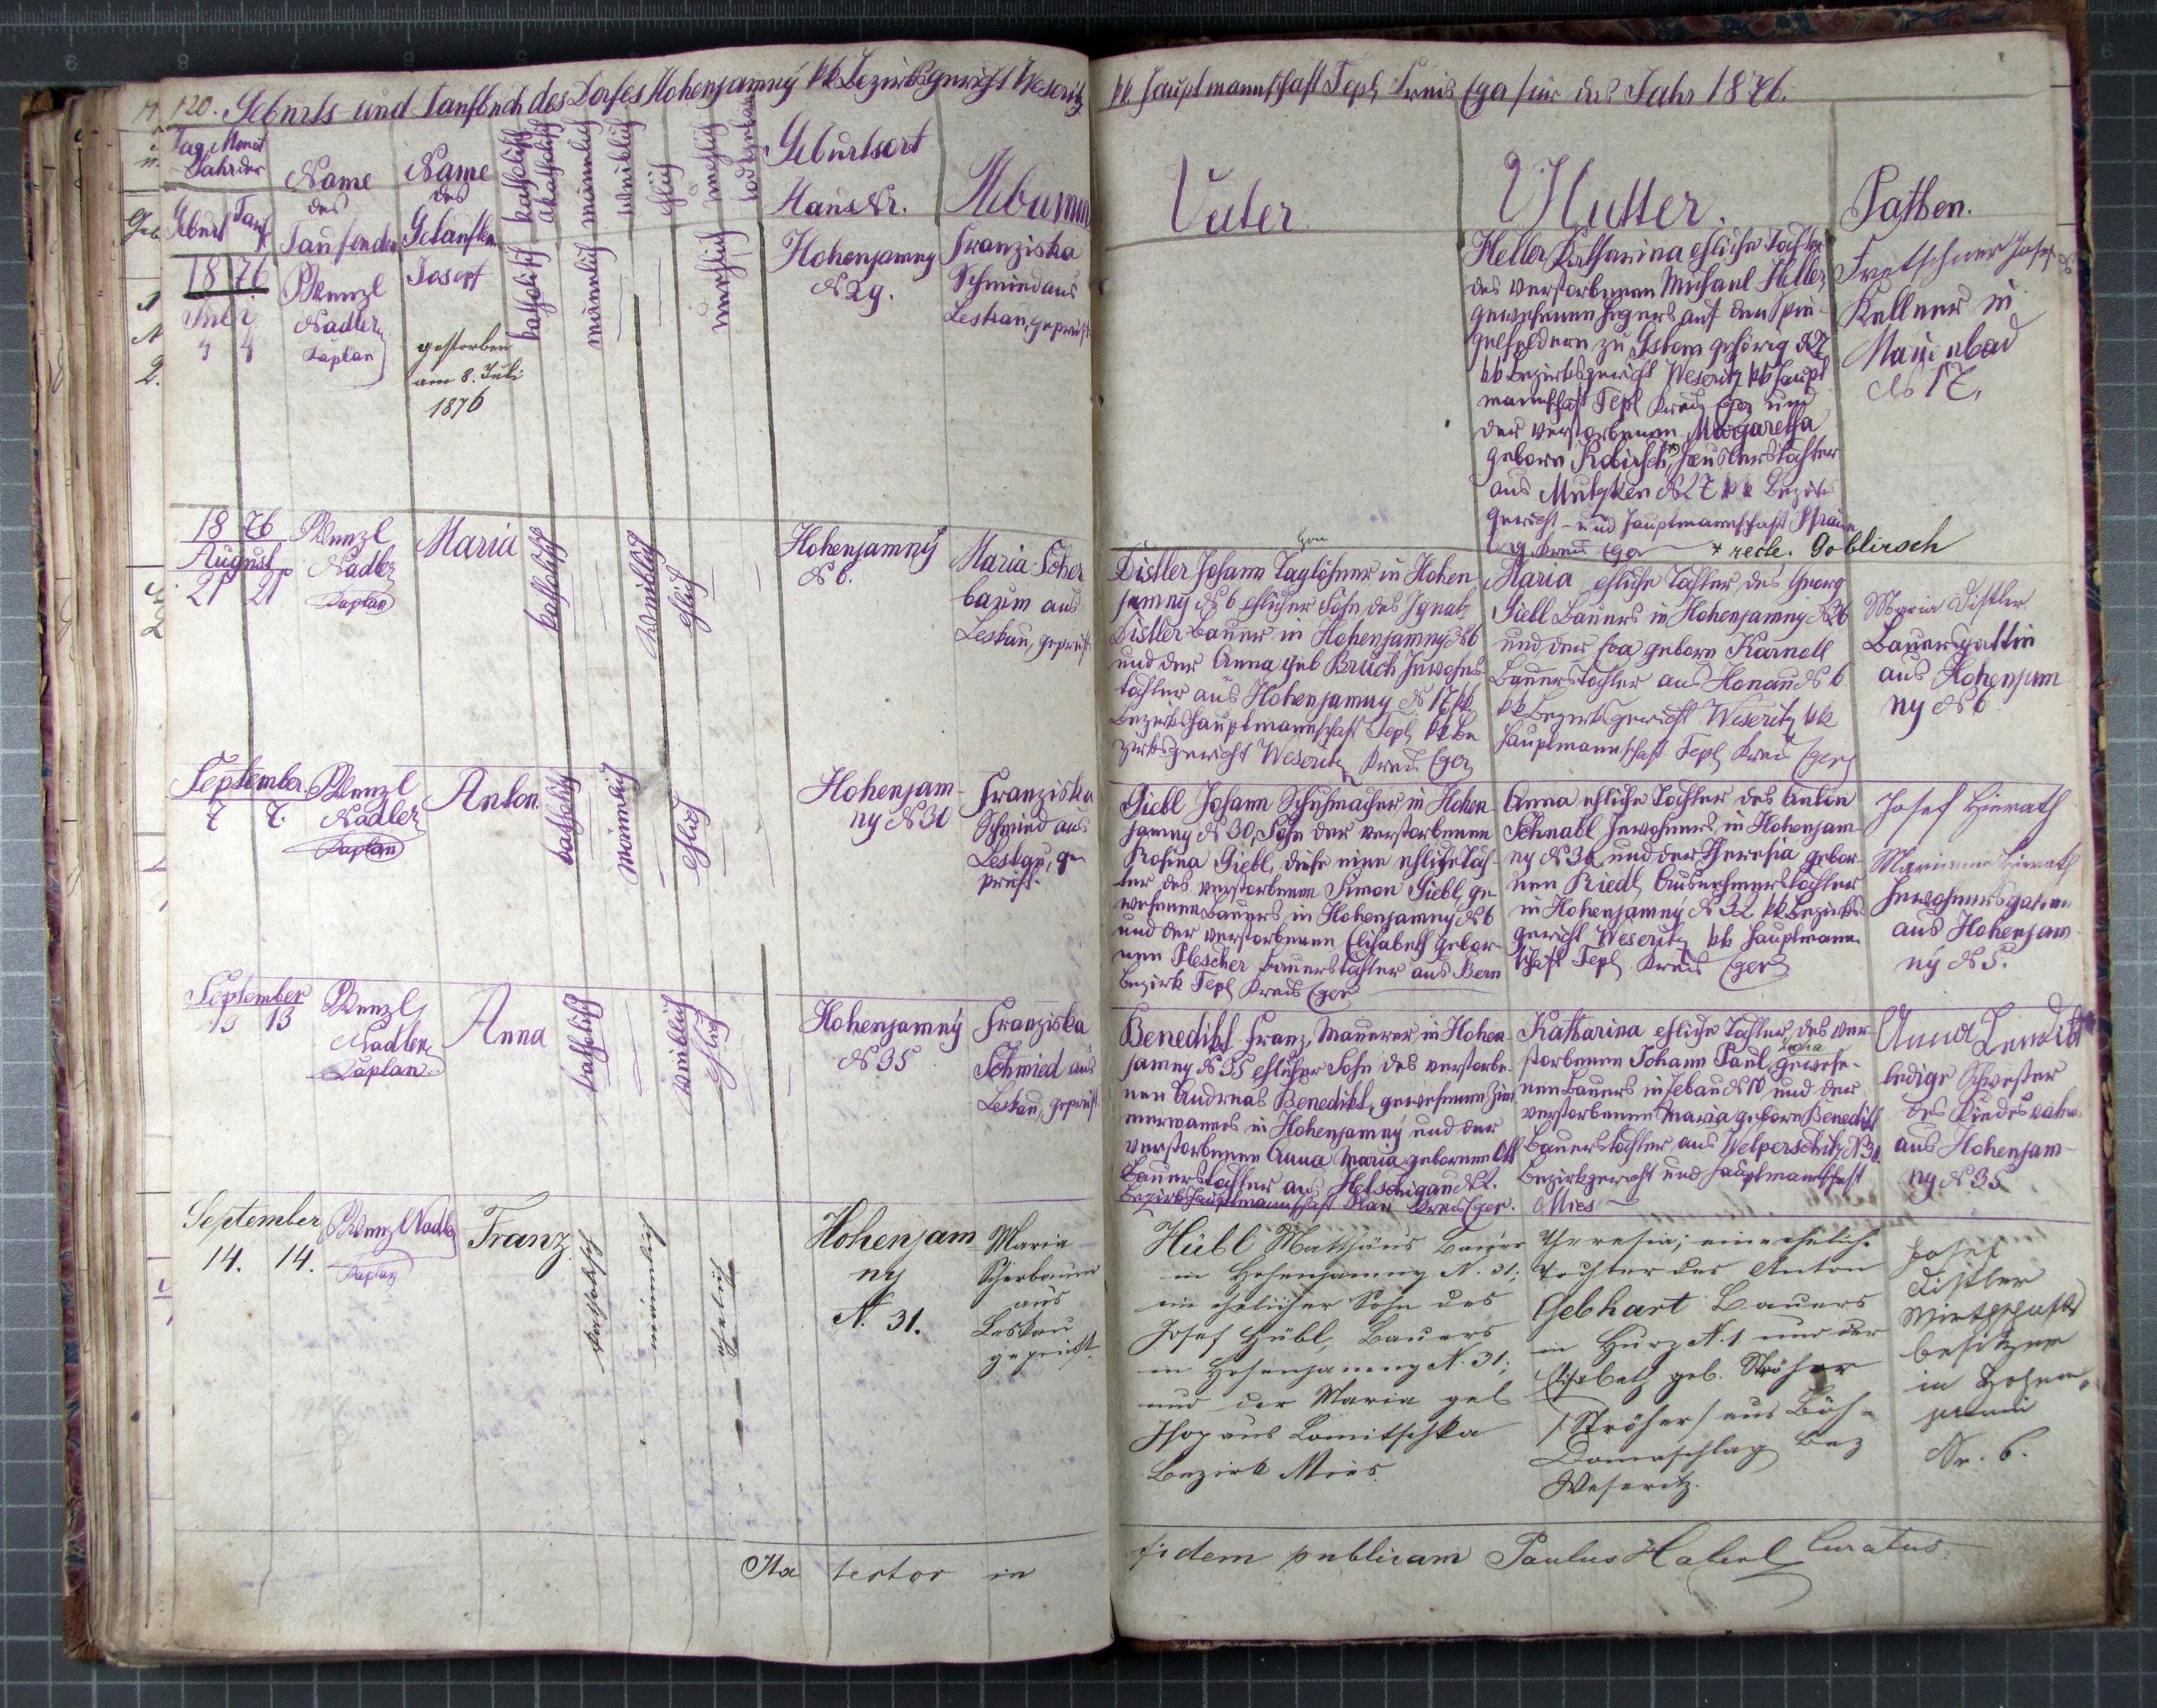 120. Geburts- und Taufbuch des Dorfes Hohenjamný kk Bezirksgericht Weseritz
kk. Hauptmannschaft Tepl, Kreis Eger für das Jahr 1876.
Tag, Monat
Jahr der
Geburt Tauf
Name
des
Taufenden
Name
des
Getauften
katholisch
akatholisch
männlich
weiblich
ehlich
unehlich
todtgeboren
Geburtsort
Haus Nr.
Hebamme
Vater
Mutter.
Pathen.
1876
Juli
4 4
Wenzl
Nadler
Kaplan
Josef
gestorben
am 8. Juli
1876
katholisch
männlich
unehlich
Hohenjamny
N 29.
Franziska
Schmied aus
Leskau, geprüft
Heller Katharina ehliche Tochter
des verstorbenen Michael Heller,
gewesenen Hegers auf den Spie-
gelfeldern zu gehörig N 2
kk Bezirksgericht Weseritz kk Haupt
mannschaft Tepl Kreis Eger und
der verstorbenen Margaretha
geborn Kobirsch, Häuslerstochter
aus N 27 kk Bezirks
gericht- und Hauptmannschaft
Kreis Eger * recte. Goblirsch
Fretschner Josef
Kellner in
Marienbad
N 17.
1876
August
21 21
Wenzl
Nadler
Kaplan
Maria
katholisch
weiblich
ehlich
Hohenjamný
N 6.
Maria Scher
baum aus
Leskau, geprüft
Distler Johann Taglöhner in Hohen
jamny N 6 ehlicher Sohn des Ignatz
Distler Bauer in Hohenjamny N 6
und der Anna geb Bruch Inwohners
tochter aus Hohenjamny N 17 kk
Bezirkshauptmannschaft Tepl kk Be
zirksgericht Weseritz Kreis Eger
Maria ehliche Tochter des Georg
Giebl Bauers in Hohenjamny N 26
und der Eva geborn Karnell
Bauerstochter aus Honau N 6
kk Bezirksgericht Weseritz kk
Hauptmannschaft Tepl Kreis Eger
Maria Distler
Bauersgattin
aus Hohenjam
ny N 6
September
7 7.
Wenzl
Nadler
Kaplan
Anton.
katholisch
männlich
ehlich
Hohenjam-
ny N 30
Franziska
Schmied aus
Leskau, ge-
prüft.
Giebl Johann Schuhmacher in Hohen
jamny N 30, Sohn der verstorbenen
Rosina Giebl, diese eine ehliche Toch-
ter des verstorbenen Simon Giebl, ge-
wesenen Bauers in Hohenjamny N 6
und der verstorbenen Elisabeth gebor-
nen Plescher Bauerstochter aus Bern
Bezirk Tepl Kreis Eger
Anna ehliche Tochter des Anton
Schnabl Inwohners in Hohenjam-
ny N 30 und der Theresia gebor-
nen Riedl, Ausnehmerstochter
in Hohenjamný N 32 kk Bezirks
gericht Weseritz kk Hauptmann-
schaft Tepl Kreis Eger
Josef
Inwohnersgattin
aus Hohenjam-
ný N 5.
September
13 13
Wenzl
Nadler
Kaplan.
Anna
katholisch
weiblich
ehlich
Hohenjamný
N 35
Franziska
Schmied aus
Leskau, geprüft
Benedikt Franz, Maurer in Hohen-
jamny N 35 ehlicher Sohn des verstorbe-
nen Andreas Benedikt, gewesenen Zim
mermannes in Hohenjamný und der
verstorbenen Anna Maria gebornen Ott
Bauerstochter aus N 2.
Bezirkshauptmannschaft Plan Kreis Eger.
Katharina ehliche Tochter des ver-
storbenen Johann Paul, gewese-
nen Bauers in N 10 und der
verstorbenen Maria geborn Benedikt
Bauerstochter aus Welperschitz N 31.
Bezirksgericht und Hauptmannschaft
Mies
Anna Benedikt
ledige Schwester
des Kindesvaters
aus Hohenjam-
ny N 35
September
14. 14.
Wenzl Nadler
Kaplan
Franz
katholisch
männlich
ehelich
Hohenjam-
ny
N. 31.
Maria
Scherbaum
aus
Leskau
geprüft.
Hübl Matthäus Bauer
in Hohenjamny N. 31;
ein ehelicher Sohn des
Josef Hübl, Bauers
in Hohenjamny N. 31;
und der Maria geb
aus Lomitschka
Bezirk Mies.
Theresia; eine eheliche
Tochter des Anton
Gebhart Bauers
in Hurz N. 1 und der
Elisabeth geb. Ströher
/Ströher/ aus Böh-
Domaschlag Bez
Weseritz.
Josef
Distler
Wirthschafts
besitzer
in Hohen-
jamni
Nr. 6.
Ita testor in
fidem publicam Paulus Haberl Curatus.